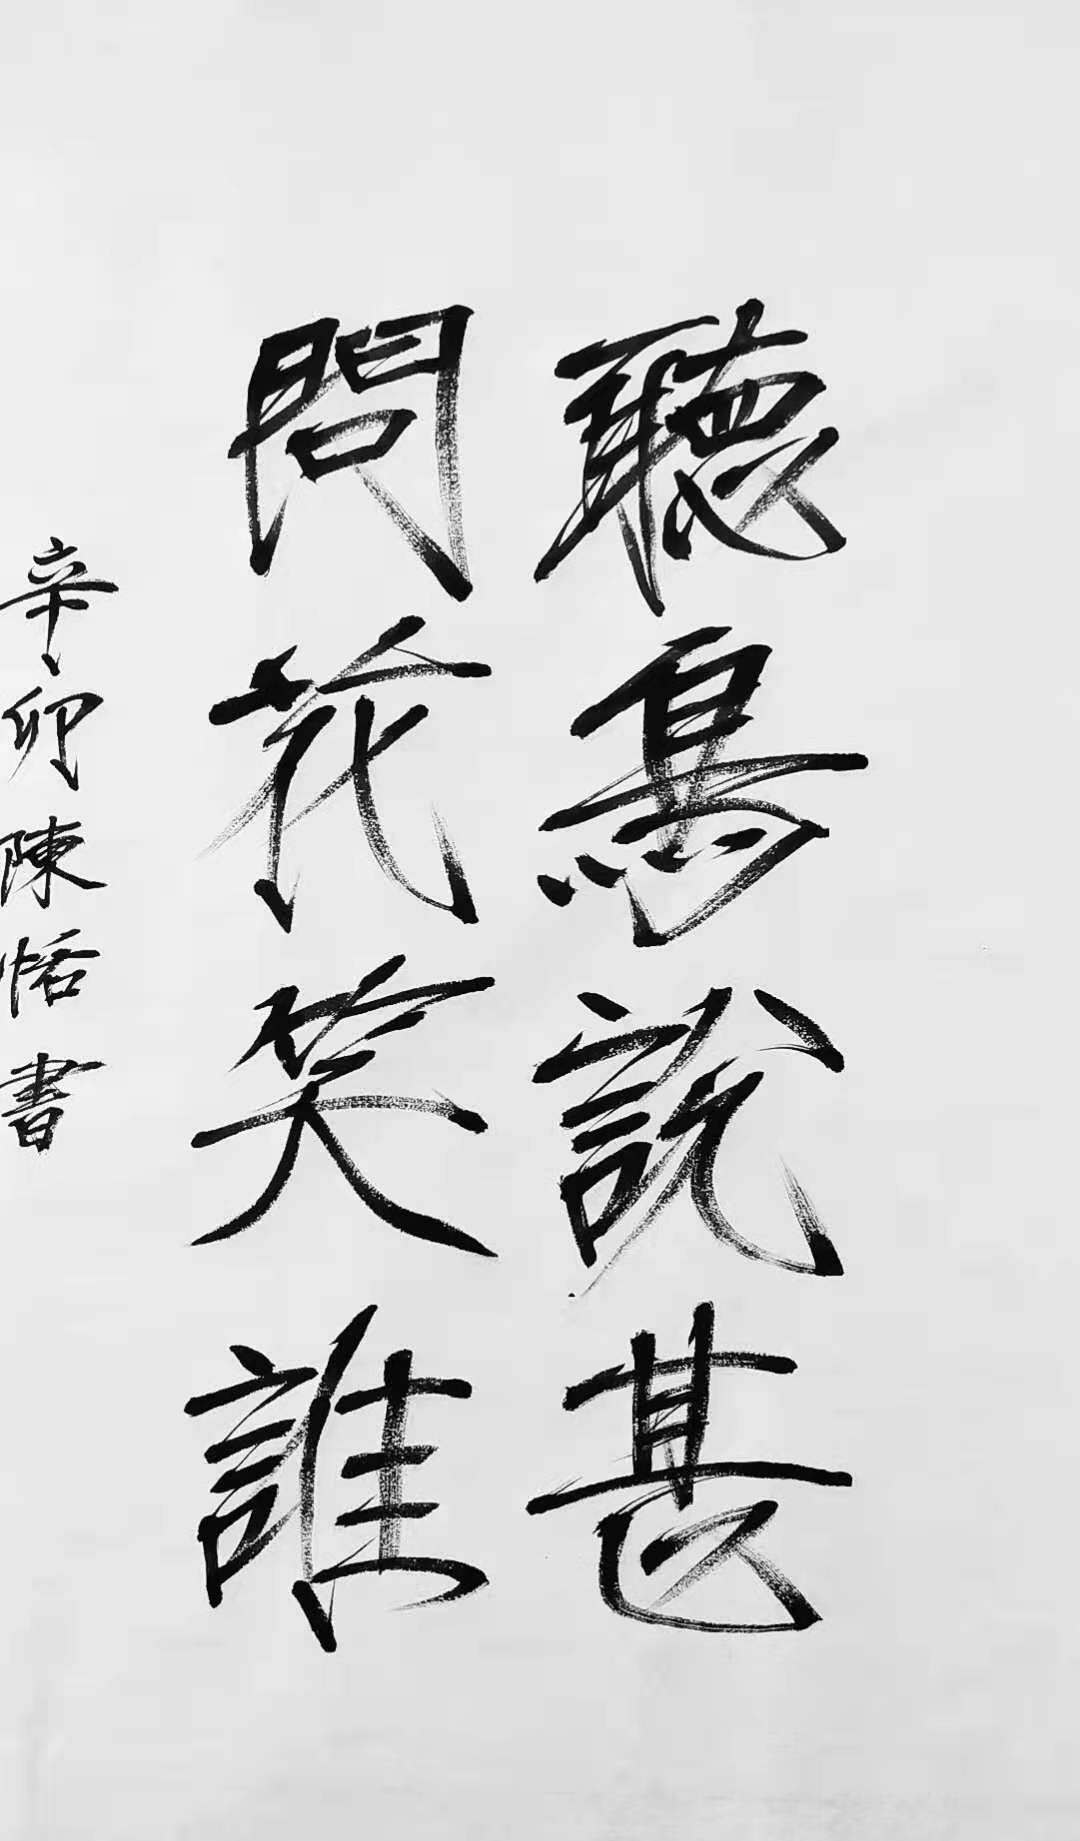 聽鳥說甚
問花笑誰
辛卯陳恬書